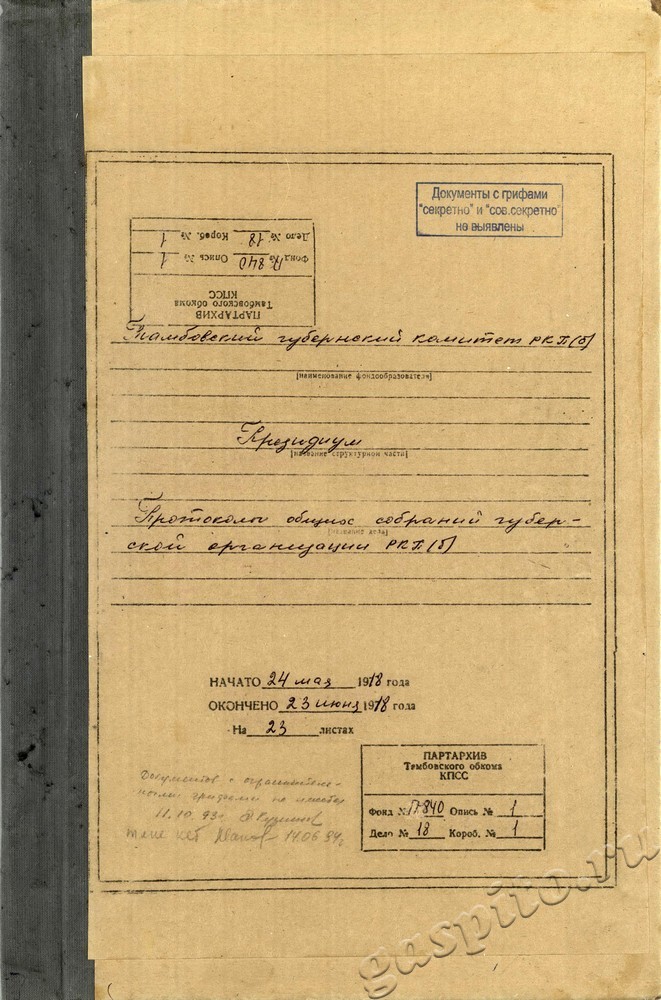 Документы с грифами
"секретно" и "сов.секретно"
не выявлены
ПАРТАРХИВ
Тамбовского обкома
КПСС
Фонд № П-840 Опись № 1
Дело № 18 Короб. № 1
Тамбовский губернский комитет РКП(б)
[наименование фондообразователя]
Президиум
[название структурной части]
Протоколы общих собраний губер-
ской организации РКП(б)
НАЧАТО 24 мая 1918 года
ОКОНЧЕНО 23 июня 1918 года
На 23 листах
ПАРТАРХИВ
Тамбовского обкома
КПСС
Фонд № П-840 Опись № 1
Дело № 18 Короб. № 1
Документов с ограничитель-
ными грифами не имеется
11.10.93г.
14.06.94г.
gaspito.ru